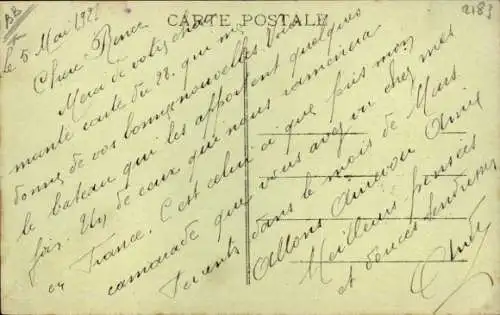 BB
CARTE POSTALE
2183
le 5 Mai
Chère Renée
Merci de votre chère
carte du 28. qui m
donne de vos bonnes nouvelles. Voici
le bateau qui les apportent quelques
fois. Un de ceux qui nous ramènera
en France. C'est celui a que pris mon
camarade que vous avez vu chez mes
Parents dans le mois de Mars
Allons Amie
Meilleures pensées
et douces tendresses